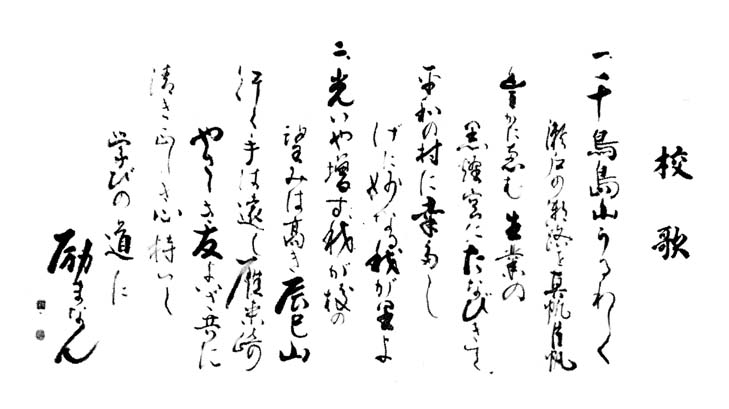 校歌
一、千鳥島山うるわしく
瀬戸の潮路を真帆片帆
豊かに恵む生業の
黒煙空にたなびきて
平和の村に幸多し
げに妙なる我が里よ
二、光いや増す我が校の
望みは高き辰巳山
行く手は遠し雁来崎
やさしき友よいざ共に
清き正しき心持いし
学びの道に
励まなん